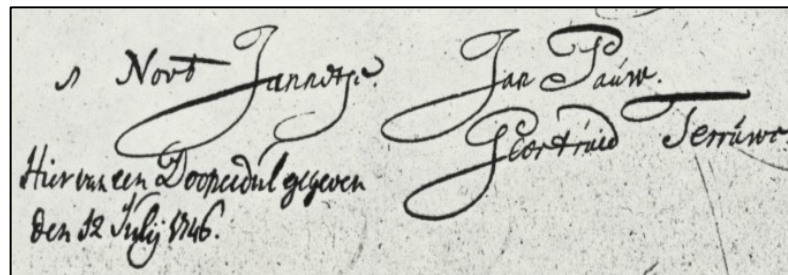 Jannetje. Jan Pauw.
Geertruid Terruwe.
Hier van een Doopcedul gegeven
den 12 July 1746.